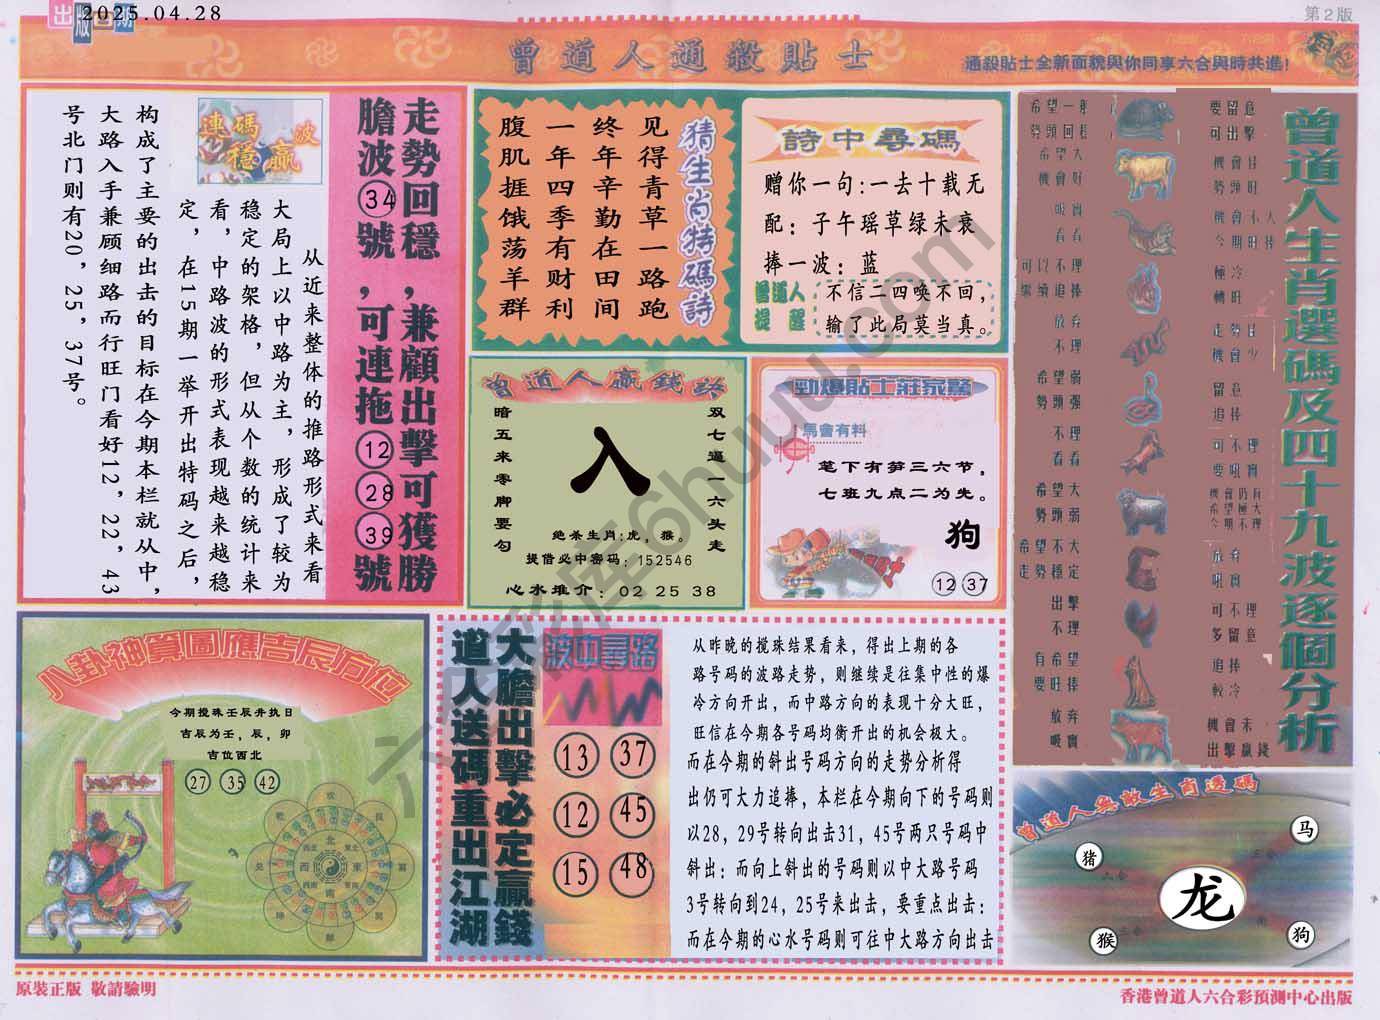 出版日期
2025.04.28
第2版
曾道人通殺貼士
通殺貼士全新面貌與你同享六合與時共進!
走勢回穩,兼顧出擊可獲勝
膽波34號,可連拖12 28 39號
連碼波
穩贏
从近来整体的推路形式来看
大局上以中路为主,形成了较为
稳定的架格,但从个数的统计来
看,中路波的形式表现越来越稳
定,在15期一举开出特码之后,
构成了主要的出击的目标在今期本栏就从中,
大路入手兼顾细路而行旺门看好12,22,43
号北门则有20,25,37号。
猜生肖特碼詩
见得青草一路跑
终年辛勤在田间
一年四季有财利
腹肌捱饿荡羊群
詩中尋碼
赠你一句:一去十载无
配:子午瑶草绿未衰
捧一波:蓝
曾道人
提醒
不信二四唤不回,
输了此局莫当真。
曾道人贏錢訣
双七逼一六头走
入
暗五来零脚要勾
绝杀生肖:虎,猴。
提借必中密码:152546
心水推介:02 25 38
勁爆貼士莊家驚
馬會有料
笔下有笋三六节,
七班九点二为先。
狗
12 37
曾道人生肖選碼及四十九波逐個分析
希望一般
勢頭回穩
要留意
可出擊
希望大
機會好
機會佳
勢頭旺
吸實
看看
機會不大
今期旺捧
可以不理
繼續追捧
種冷
轉旺
放弃
不理
走勢佳
機會少
希望弱
勢頭强
留意
追捧
不理
看看
可不理
要吼實
希望大
勢頭弱
機會仍有
希望極大
今期不理
希望不大
走勢穩定
放弃
吼實
出擊
不理
可不理
多留意
有希望
要旺捧
追捧
較冷
放弃
吸實
機會未
出擊贏錢
八卦神算圖應吉辰方位
今期搅珠壬辰并执日
吉辰为壬,辰,卯
吉位西北
27 35 42
大膽出擊必定贏錢
道人送碼重出江湖
波中尋路
13 37
12 45
15 48
从昨晚的搅珠结果看来,得出上期的各
路号码的波路走势,则继续是往集中性的爆
冷方向开出,而中路方向的表现十分大旺,
旺信在今期各号码均衡开出的机会极大。
而在今期的斜出号码方向的走势分析得
出仍可大力追捧,本栏在今期向下的号码则
以28,29号转向出击31,45号两只号码中
斜出:而向上斜出的号码则以中大路号码
3号转向到24,25号来出击,要重点出击:
而在今期的心水号码则可往中大路方向出击
曾道人無敵生肖透碼
马
猪
龙
猴
狗
原裝正版 敬請驗明
香港曾道人六合彩預測中心出版
六合彩库6huuu.com